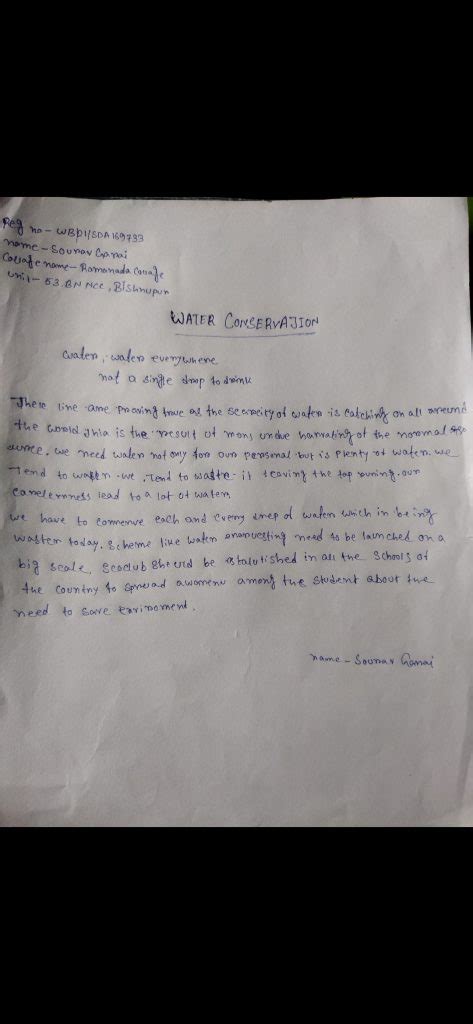 Reg no - WBP1/SDA169733
name - Sounav Ganai
Collage name - Ramanada Collage
Unit - 53 BN NCC, Bishnupur
WATER CONSERVATION
Water, water everywhere
not a single drop to drink
These line are proving true as the scarecity of water is catching on all areund
the world this is the result of mans undue harvating of the normal
we need water not only for our personal but is plenty of water. we
Tend to . we, Tend to waste it leaving the tap runing. our
carelernness lead to a lot of water,
we have to conserve each and every drep of water which in being
waster today. Scheme like water need to be launched on a
big scale. Ecoclub should be in all the Schools of
the country to spread among the student about the
need to save .
name - Sounav Ganai